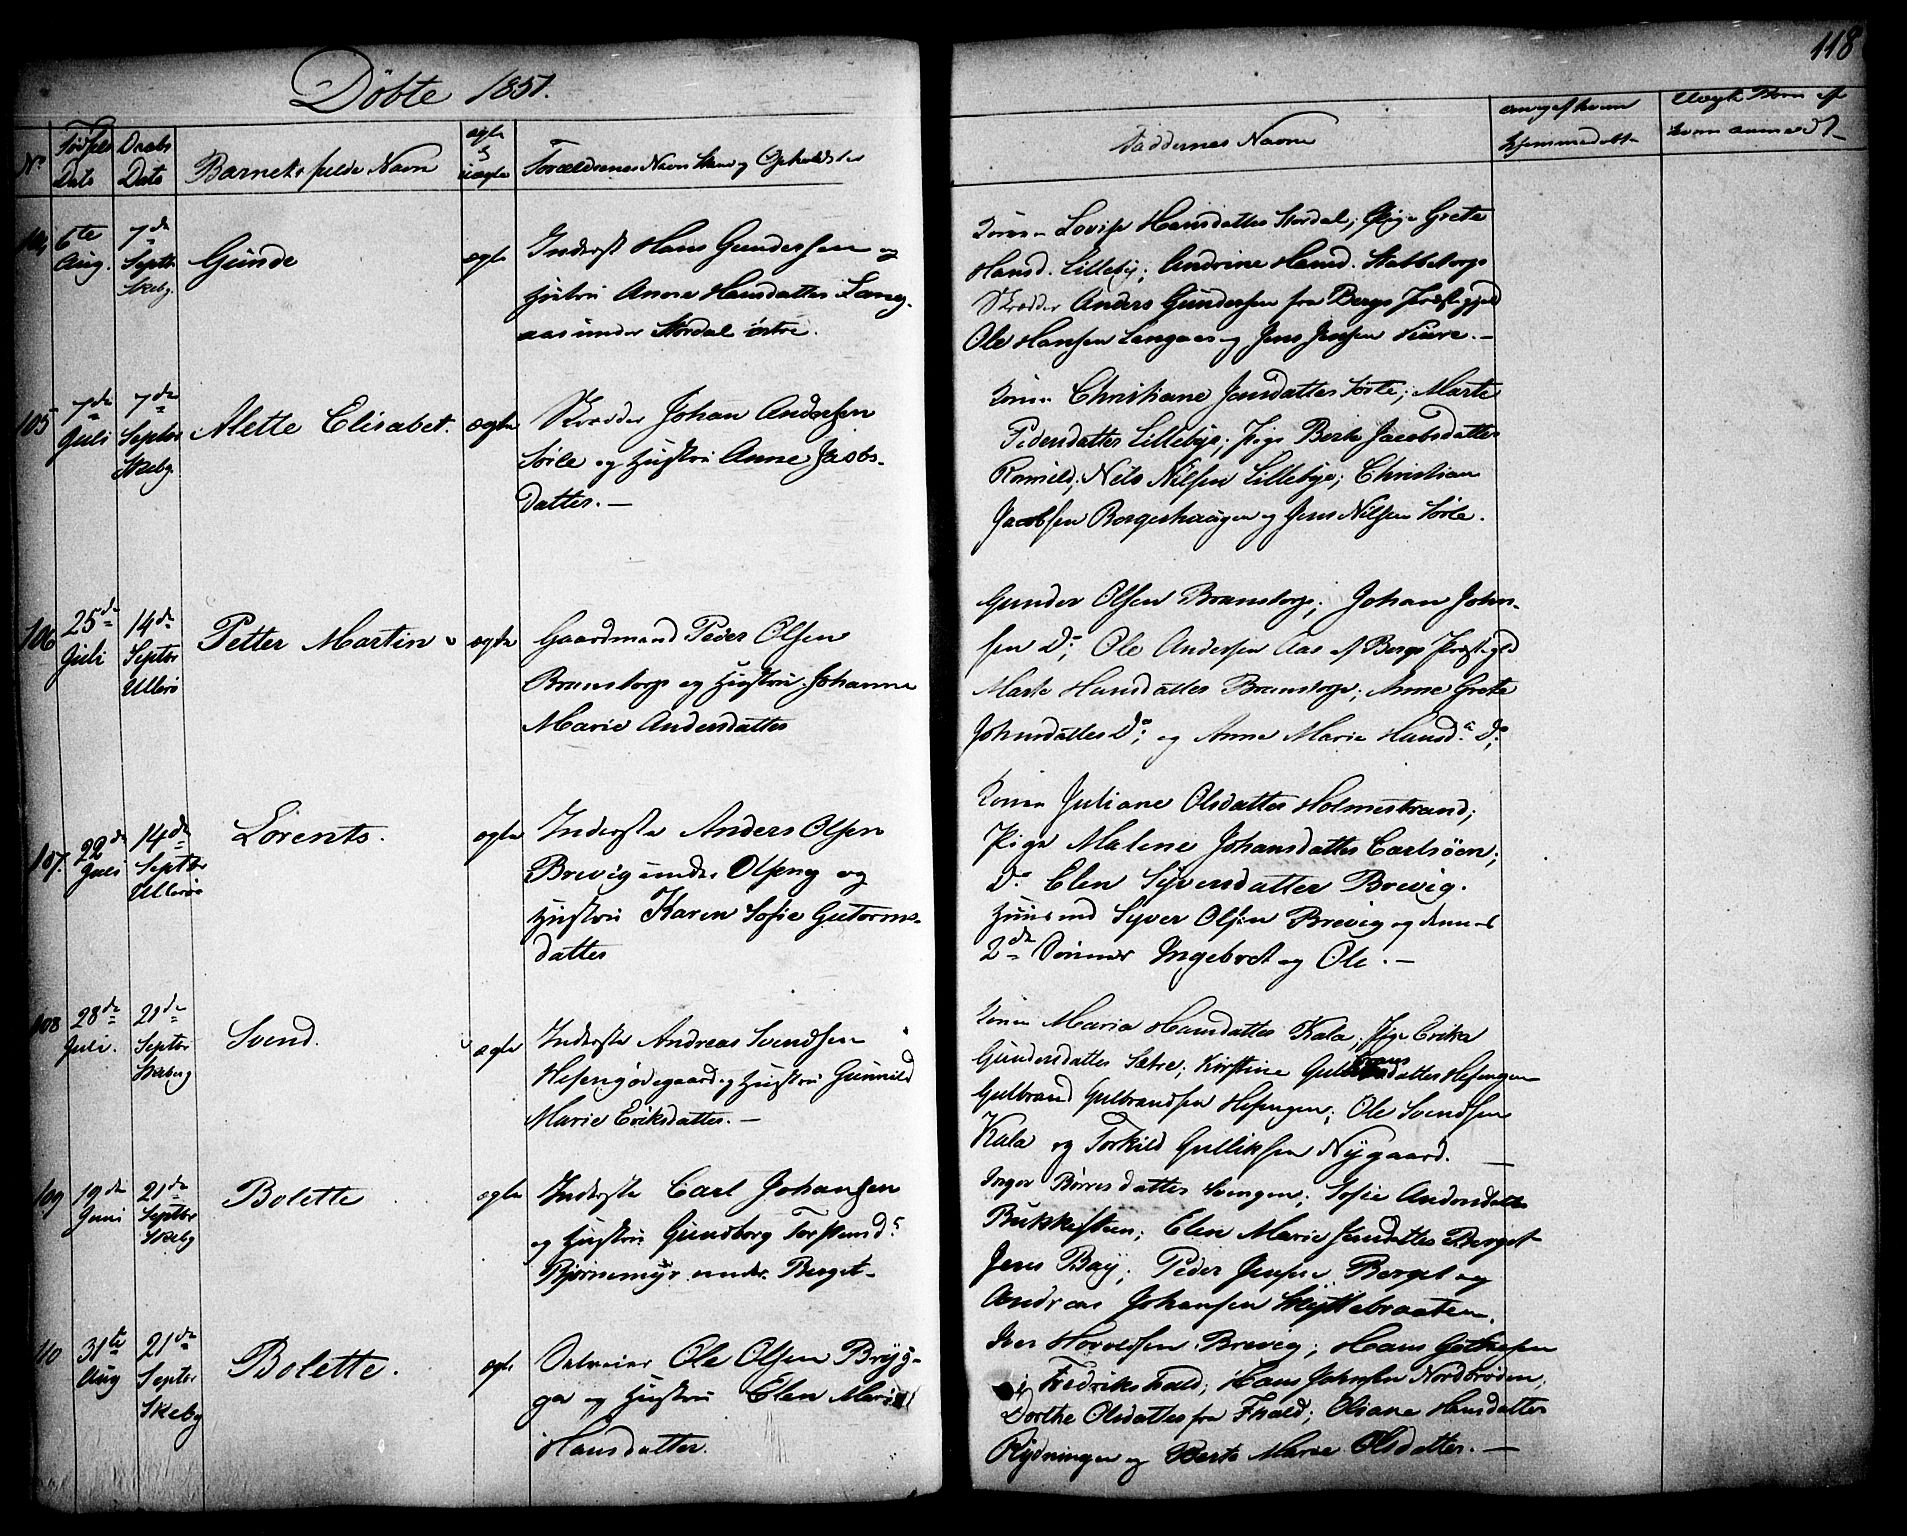 118
Döbte 1851.
No
Födsels Dato
Daabs Dato
Barnets fulde Navn
ægte
uægte
Forældrenes Navn Stand og Opholdsted
Faddernes Navne
hjemmedøbt
104
6te Aug.
7de Septbr Skeby.
Günde
ægte
Inderst Hans Gundersen og
Hustru Anne Hansdatter Lang-
aas under Stordal östre.
Konen Lovise Hansdatter Stordal; Pige Grete
Hansd. Lilleby; Andrine Hansd. Stabbetorp
Skrædder Anders Gundersen fra Bergs Præstegjeld
Ole Hansen Langaas og Jens Jensen
105
7de Juli
7de Septbr Skeby.
Alette Elisabet.
ægte
Skrædder Johan Andersen
Sörle og Hustru Anne Jacobs-
datter. —
Konen Christiane Jensdatter Sörle; Marte
Pedersdatter Lillebye; Pige Berte Jacobsdatter
Romild; Nils Nilsen Lillebye; Christian
Jacobsen Borgeshaugen og Jens Nilsen Sörle.
106
25de Juli
14de Septbr Ullerö
Petter Martin
ægte
Gaardmand Peder Olsen
Bramstorp og Hustru Johanne
Marie Andersdatter
Gunder Olsen Bramstorp; Johan John-
sen Do; Ole Andersen Aas af Bergs Præstegjeld
Marte Hansdatter Bramstorp; Anne Grete
Johnsdatter Do; og Anne Marie Hansd. Do;
107.
22de Juli
14de Septbr Ulleröe
Lorents.
ægte
Inderste Anders Olsen
Brevig under Olseng og
Hustru Karen Sofie Gutorms-
datter
Konen Juliane Olsdatter Holmestrand;
Pige Malene Johansdatter Carlsöen;
Do Elen Syversdatter Brevig.
Huusmd Syver Olsen Brevig og dennes
2de Sönner Ingebret og Ole. —
108
28de Juli.
21de Septbr Skeberg
Svend.
ægte
Inderste Andreas Svendsen
Hesengödegaard og Hustru Gunnild
Marie Eriksdatter. —
Konen Maria Hansdatter Kala; Pige Erika
Gundersdatter Sætre; Kirstine Gulbransdatter Hesengen
Gulbrand Gulbrandsen Hesengen; Ole Svendsen
Kala og Torkild Gulliksen Nygaard. —
109
19de Juni
21de Septbr Skeby
Bolette
ægte
Inderste Carl Johansen
og Hustru Gundborg Torstensd.
Björnemyr under Berget
Inger Börresdatter; Sofie Andersdatter
Bukkesteen; Elen Marie Jensdatter Berget
Jens Bay; Peder Jensen Berget og
Andreas Johansen Skyttebraaten.
110
31te Aug
21de Septbr Skeby
Bolette.
ægte
Ole Olsen Brÿg-
ger og Hustru Elen Marie
Hansdatter.
Iver Hovelsen Brevig; Hans
Fredrikshald; Hans Johnsen Nordröden;
Dorthe Olsdatter fra Fhald; Oliane Hansdatter
Rydningen og Berte Marie Olsdatter. —